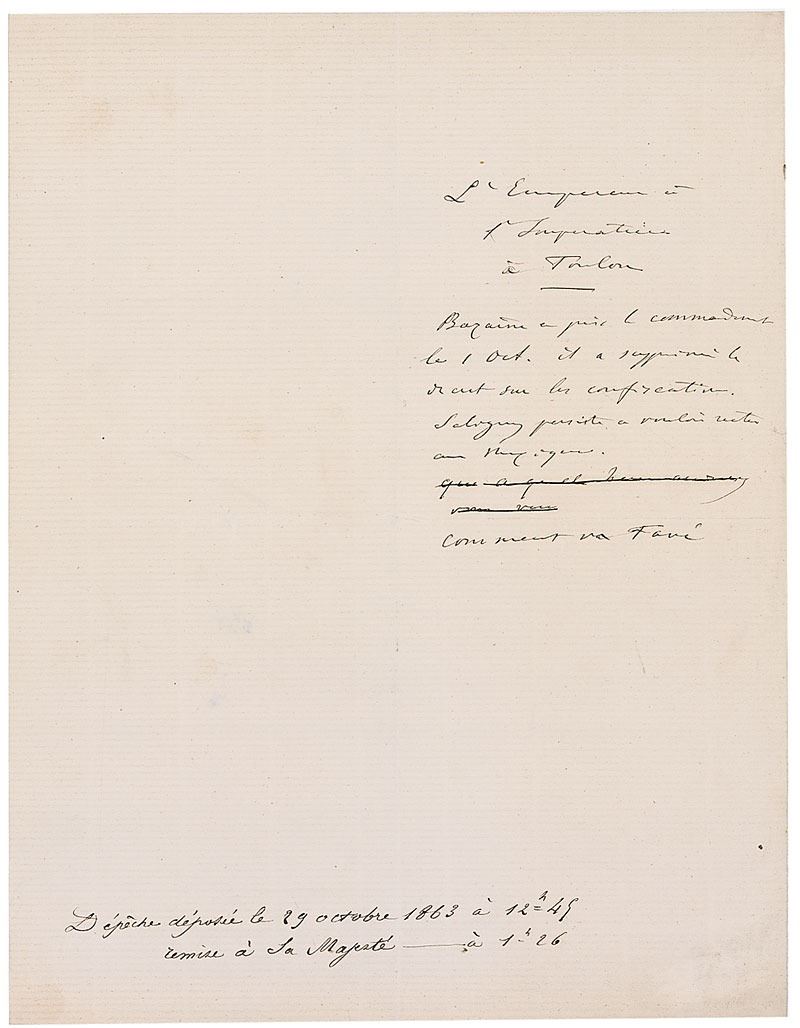 L' Empereur à
l' Imperatrice
à Toulon
Bazaine a pris le commandement
le 1 Oct. il a supprimé le
decret sur les confiscation.
Saligny persiste a vouloir rester
au Mexique.
comment va Favé
Dépêche déposée le 29 octobre 1863 à 12h 45
remise à Sa Majesté — à 1h 26